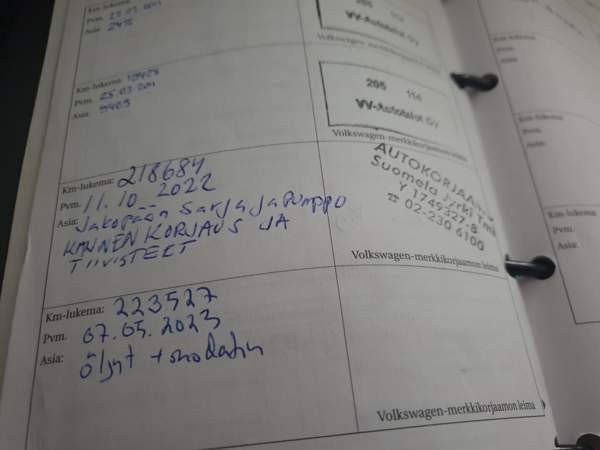 Km-lukema:
Pvm. 25.03.2011
Asia:
VV-Autotalot Oy
Volkswagen-merkkikorjaamon leima
Km-lukema:
Pvm. 25.03.2011
Asia:
205 114
VV-Autotalot Oy
Volkswagen-merkkikorjaamon leima
Km-lukema: 218684
Pvm. 11.10.2022
Asia: Jakopään sarja ja pumppu
KANNEN KORJAUS JA
TIIVISTEET
AUTOKORJAA
Suomela Jyrki Tmi
Y 1745327-8
☎ 02-230 6100
Volkswagen-merkkikorjaamon leima
Km-lukema: 223527
Pvm. 07.05.2023
Asia: öljyt + suodatin
Volkswagen-merkkikorjaamon leima
Pvm.
Asia:
Km-lukema:
Pvm.
Asia:
Km-l
Pvm.
Asia: